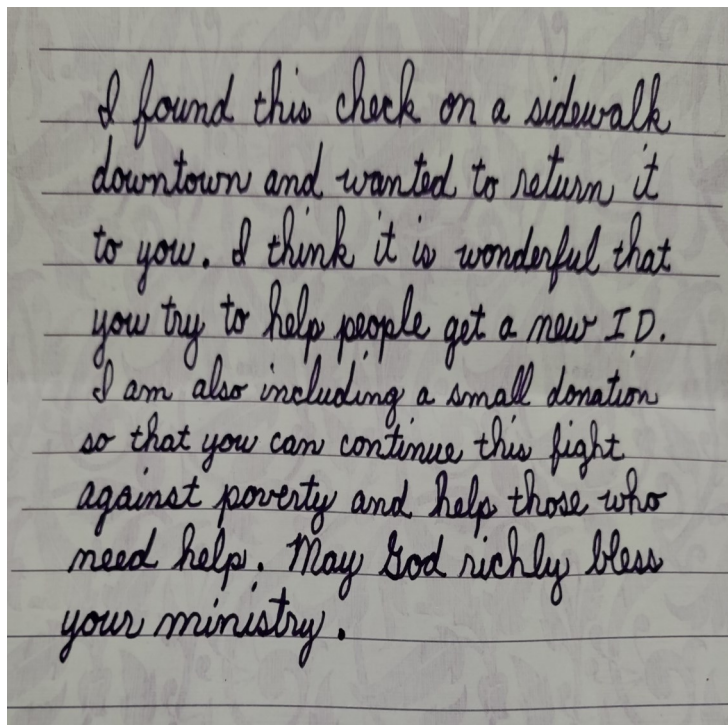 I found this check on a sidewalk
downtown and wanted to return it
to you. I think it is wonderful that
you try to help people get a new ID.
I am also including a small donation
so that you can continue this fight
against poverty and help those who
need help. May God richly bless
your ministry.